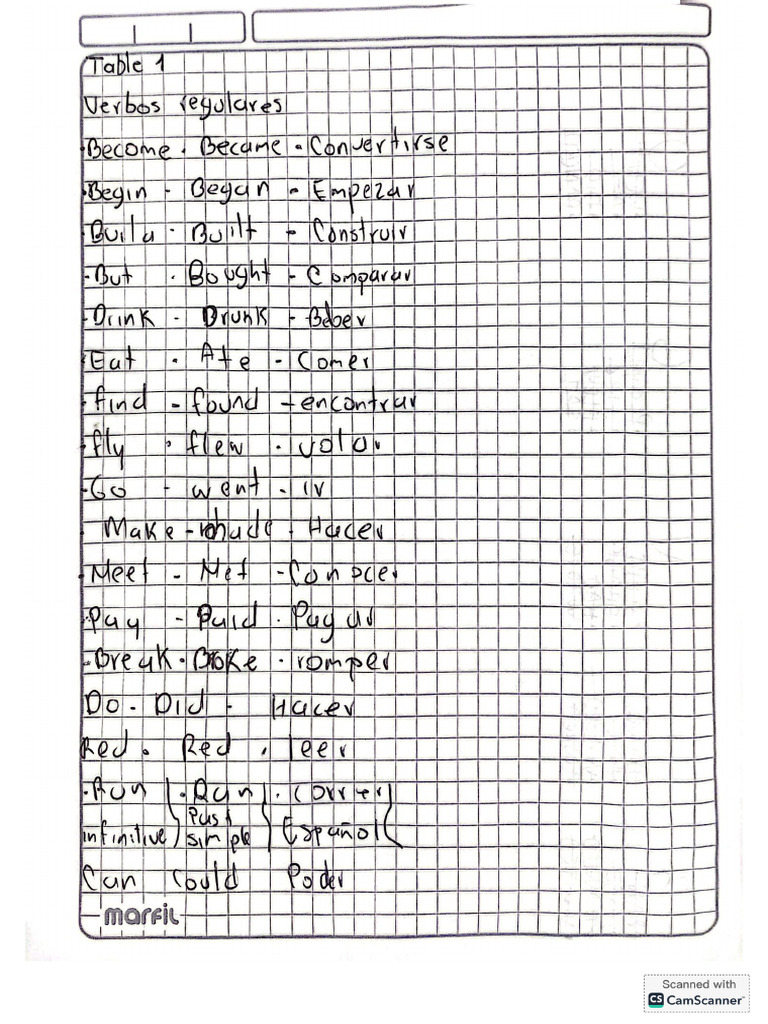 Table 1
Verbos regulares
·Become · Became - Convertirse
·Begin - Began - Empezar
·Build · Built - Construir
·But · Bought - Comparar
·Drink - Drunk - Beber
Eat · Ate - Comer
·find - found - encontrar
·fly · flew · volar
·Go - went - ir
Make - made · Hacer
·Meet - Met - Conocer
·Pay - Paid · Pagar
·Break · Broke · romper
Do - Did - Hacer
Red · Red · leer
·Run ) ·Run ) · correr )
infinitive ) Past simple ) Español (
Can Could Poder
marfil
Scanned with
CS CamScanner